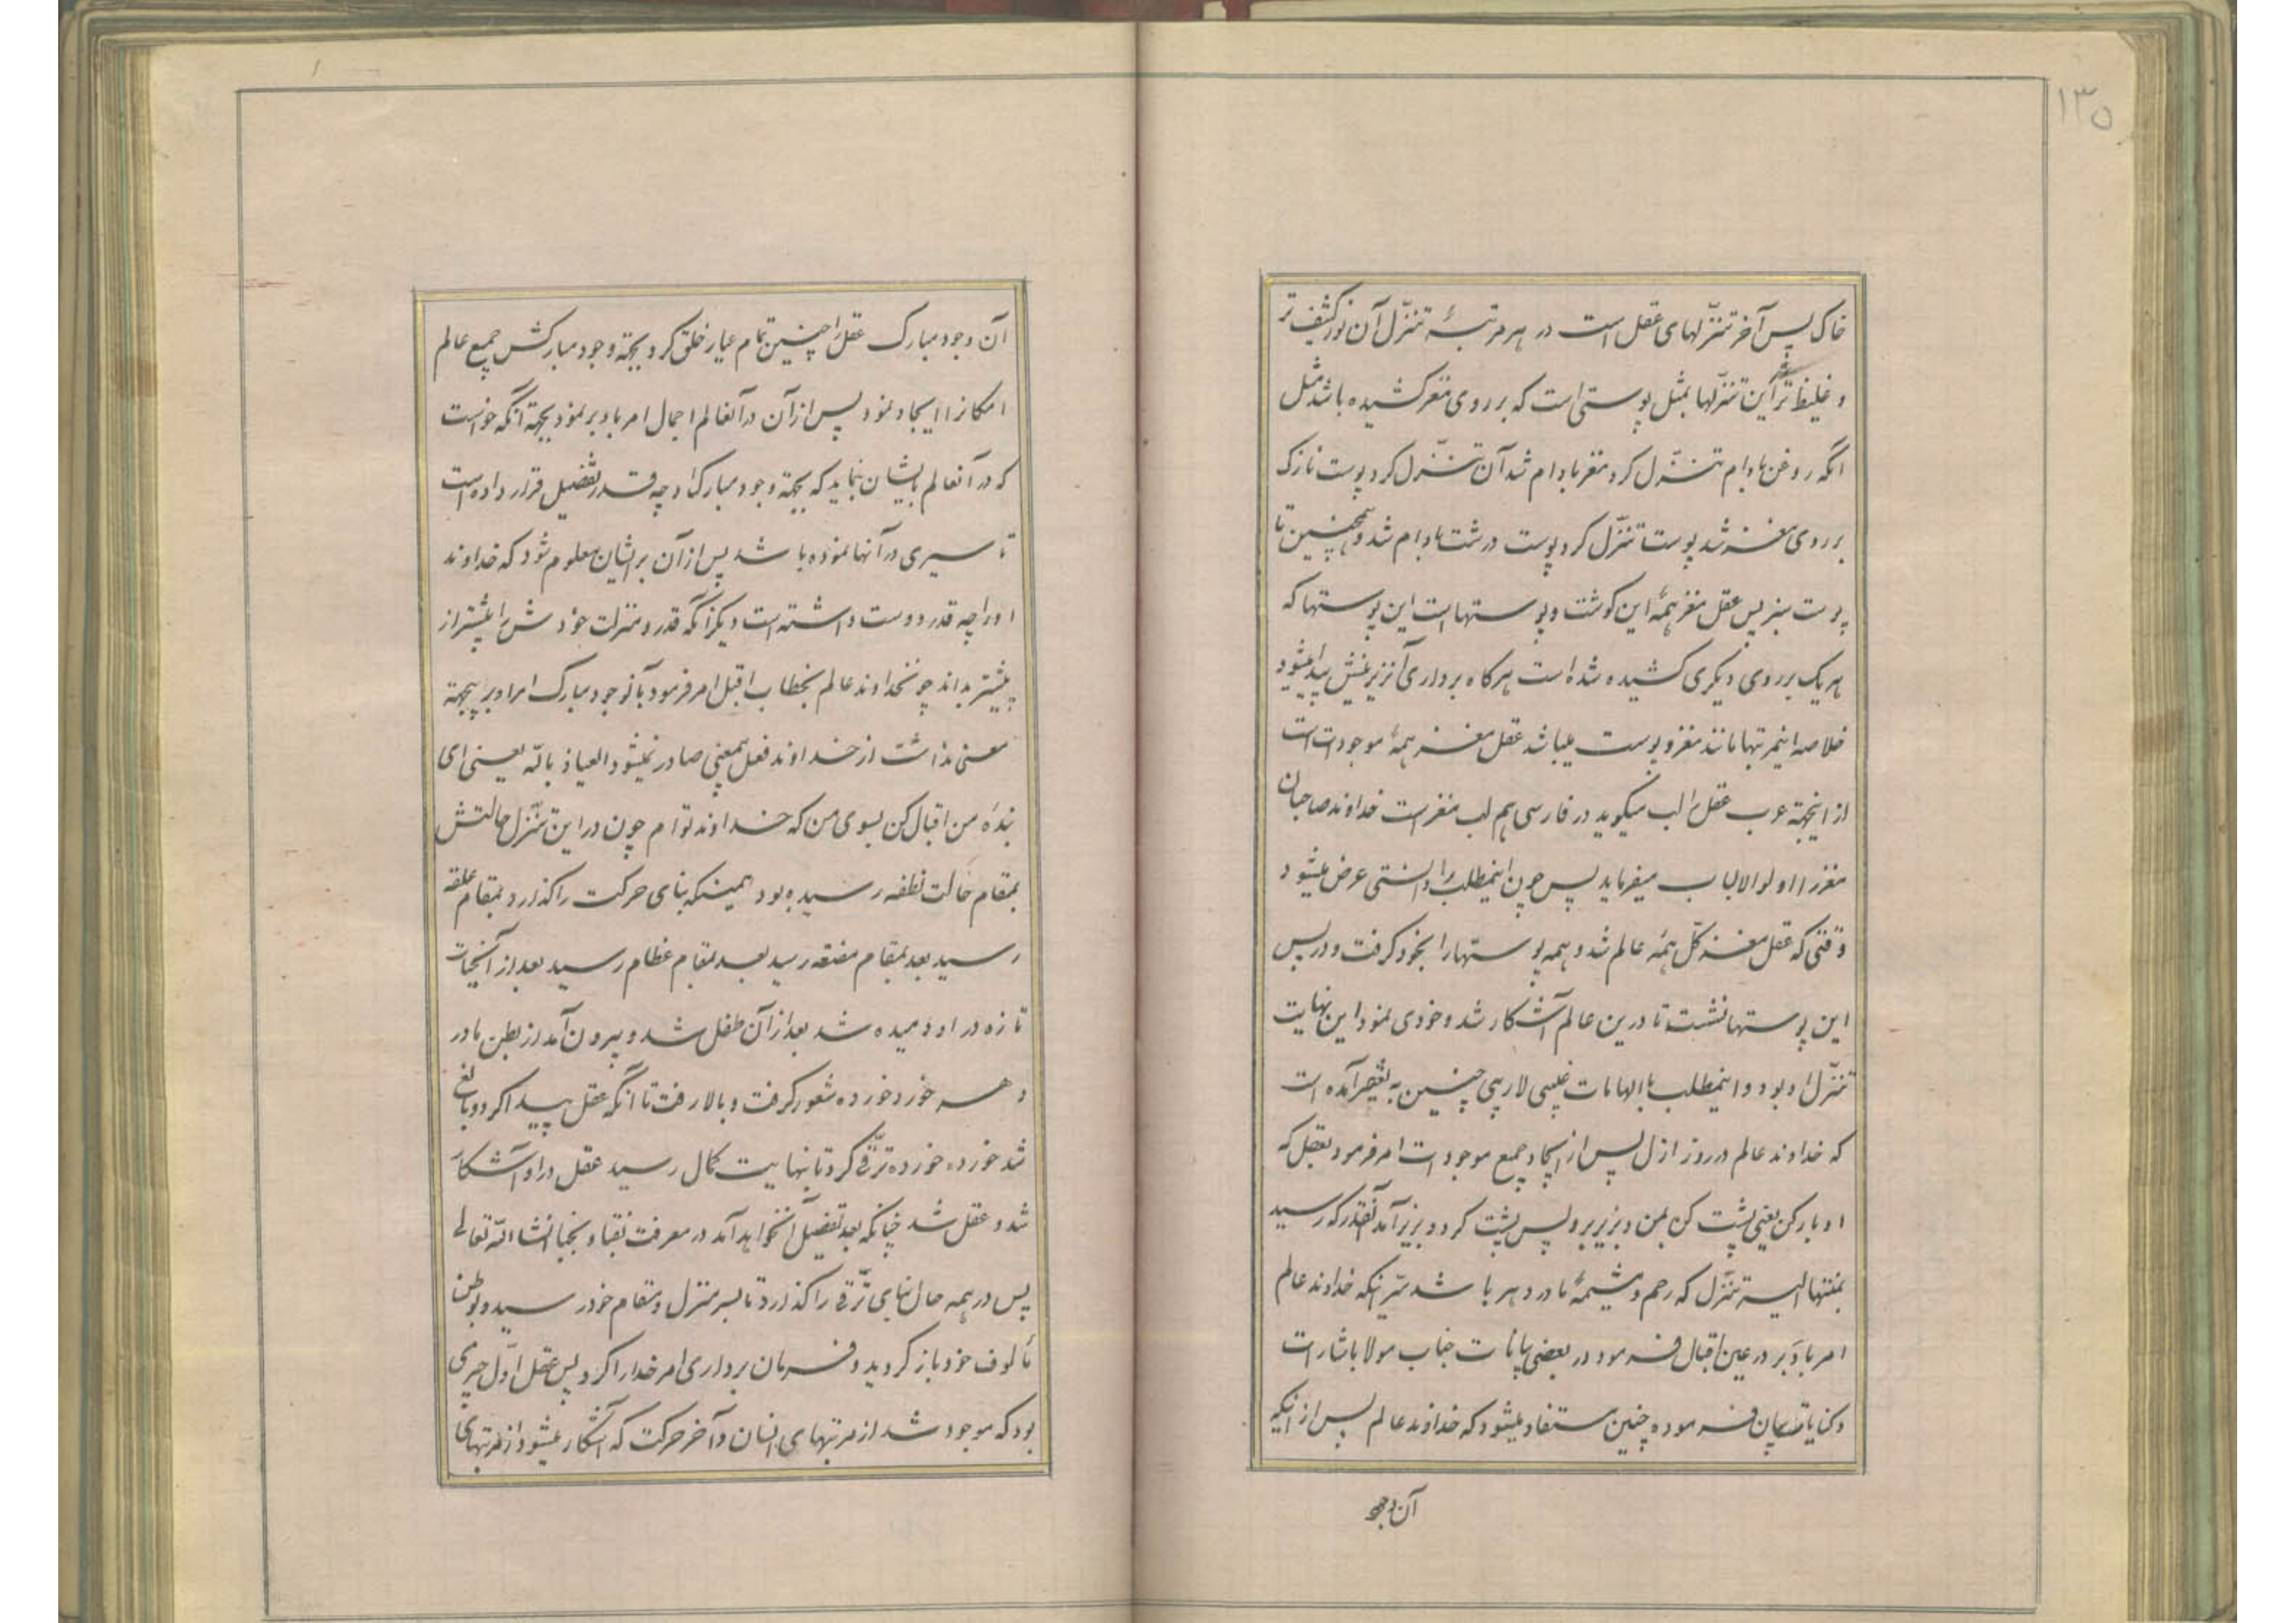 ۱۳۵
خاک پس آخر تنزّلهای عقل است در هر مرتبهٔ تنزّل آن نور کثیف تر
و غلیظ تر شد این تنزّلها بمثل پوستی است که بر روی مغز کشیده باشد مثل
انکه روغن بادام تنزّل کرد مغز بادام شد آن تنزّل کرد پوست نازک
بر روی مغز شد پوست تنزّل کرد پوست درشت بادام شد و همچنین تا
پوست سبز پس عقل مغز همهٔ این کوشت و پوستهاست این پوستها که
هر یک بر روی دیکری کشیده شده است هرکاه برداری آنرا زیرینش پیدا میشود
خلاصه اینمرتبها مانند مغز و پوست میباشد عقل مغز همهٔ موجودات است
از اینجهة عرب عقل را لب میکوید در فارسی هم لب مغز است خداوند صاحبان
مغز را اولوالالباب میفرماید پس چون اینمطلب را دانستی عرض میشود
وقتی که عقل مغز کلّ همهٔ عالم شد و همه پوستها را بخود کرفت و در پس
این پوستها نشست تا درین عالم آشکار شد و خودی نمود این نهایت
تنزّل او بود و اینمطلب با الهامات غیبی لاریبی چنین به تعبیر آمده است
که خداوند عالم در روز ازل پس از ایجاد جمیع موجودات امر فرمود بعقل که
ادبار کن یعنی پشت کن بمن و بزیر برو پس پشت کرد و بزیر آمد آنقدر که رسید
بمنتها الیه تنزّل که رحم و مشیمهٔ مادر دهر باشد سرّ اینکه خداوند عالم
امر بادبَر در عین اقبال فرمود در بعضی بیانات جناب مولا باشارات
و کنایات بیان فرموده چنین مستفاد میشود که خداوند عالم پس از آنکه
آن وجود
آن وجود مبارک عقل را چنین تمام عیار خلق کرد بجهة وجود مبارکش جمیع عالم
امکانرا ایجاد نمود پس از آن در آنعالم اجمال امر بادبر نمود بجهة آنکه خواست
که در آنعالم بایشان بنماید که بجهة وجود مبارک او چه قدر تفضیل قرار داده است
تا سیری در آنها نموده باشد پس از آن بر ایشان معلوم شود که خداوند
او را چه قدر دوست داشته است دیکر آنکه قدر و منزلت خودش را بیشتر از
پیشتر بداند چونخداوند عالم بخطاب اقبل امر فرمود بآنوجود مبارک امر ادبر بیجهة
معنی نداشت از خداوند فعل بیمعنی صادر نمیشود العیاذ بالله یعنی ای
بندهٔ من اقبال کن بسوی من که خداوند توام چون در این تنزّل حالتش
بمقام حالت نطفه رسیده بود همینکه بنای حرکت را کذارد بمقام علقه
رسید بعد بمقام مضغه رسید بعد بمقام عظام رسید بعد از آنحیات
تازه در او دمیده شد بعد از آن طفل شد و بیرون آمد از بطن مادر
دهر خورد خورده شعور کرفت و بالا رفت تا آنکه عقل پیدا کرد و بالغ
شد خورده خورده ترّقی کرد تا بنهایت کمال رسید عقل در او آشکار
شد و عقل شد چنانکه بعد تفضیل آن خواهد آمد در معرفت نقبا و نجبا انشاالله تعالی
پس در همه حال بنای ترّقی را کذارد تا بسر منزل و مقام خود رسید و بوطن
مألوف خود باز کردید و فرمان برداری امر خدا را کرد پس عقل اوّل چیزی
بود که موجود شد از مرتبهای انسان و آخر حرکت که آشکار میشود از مرتبهای